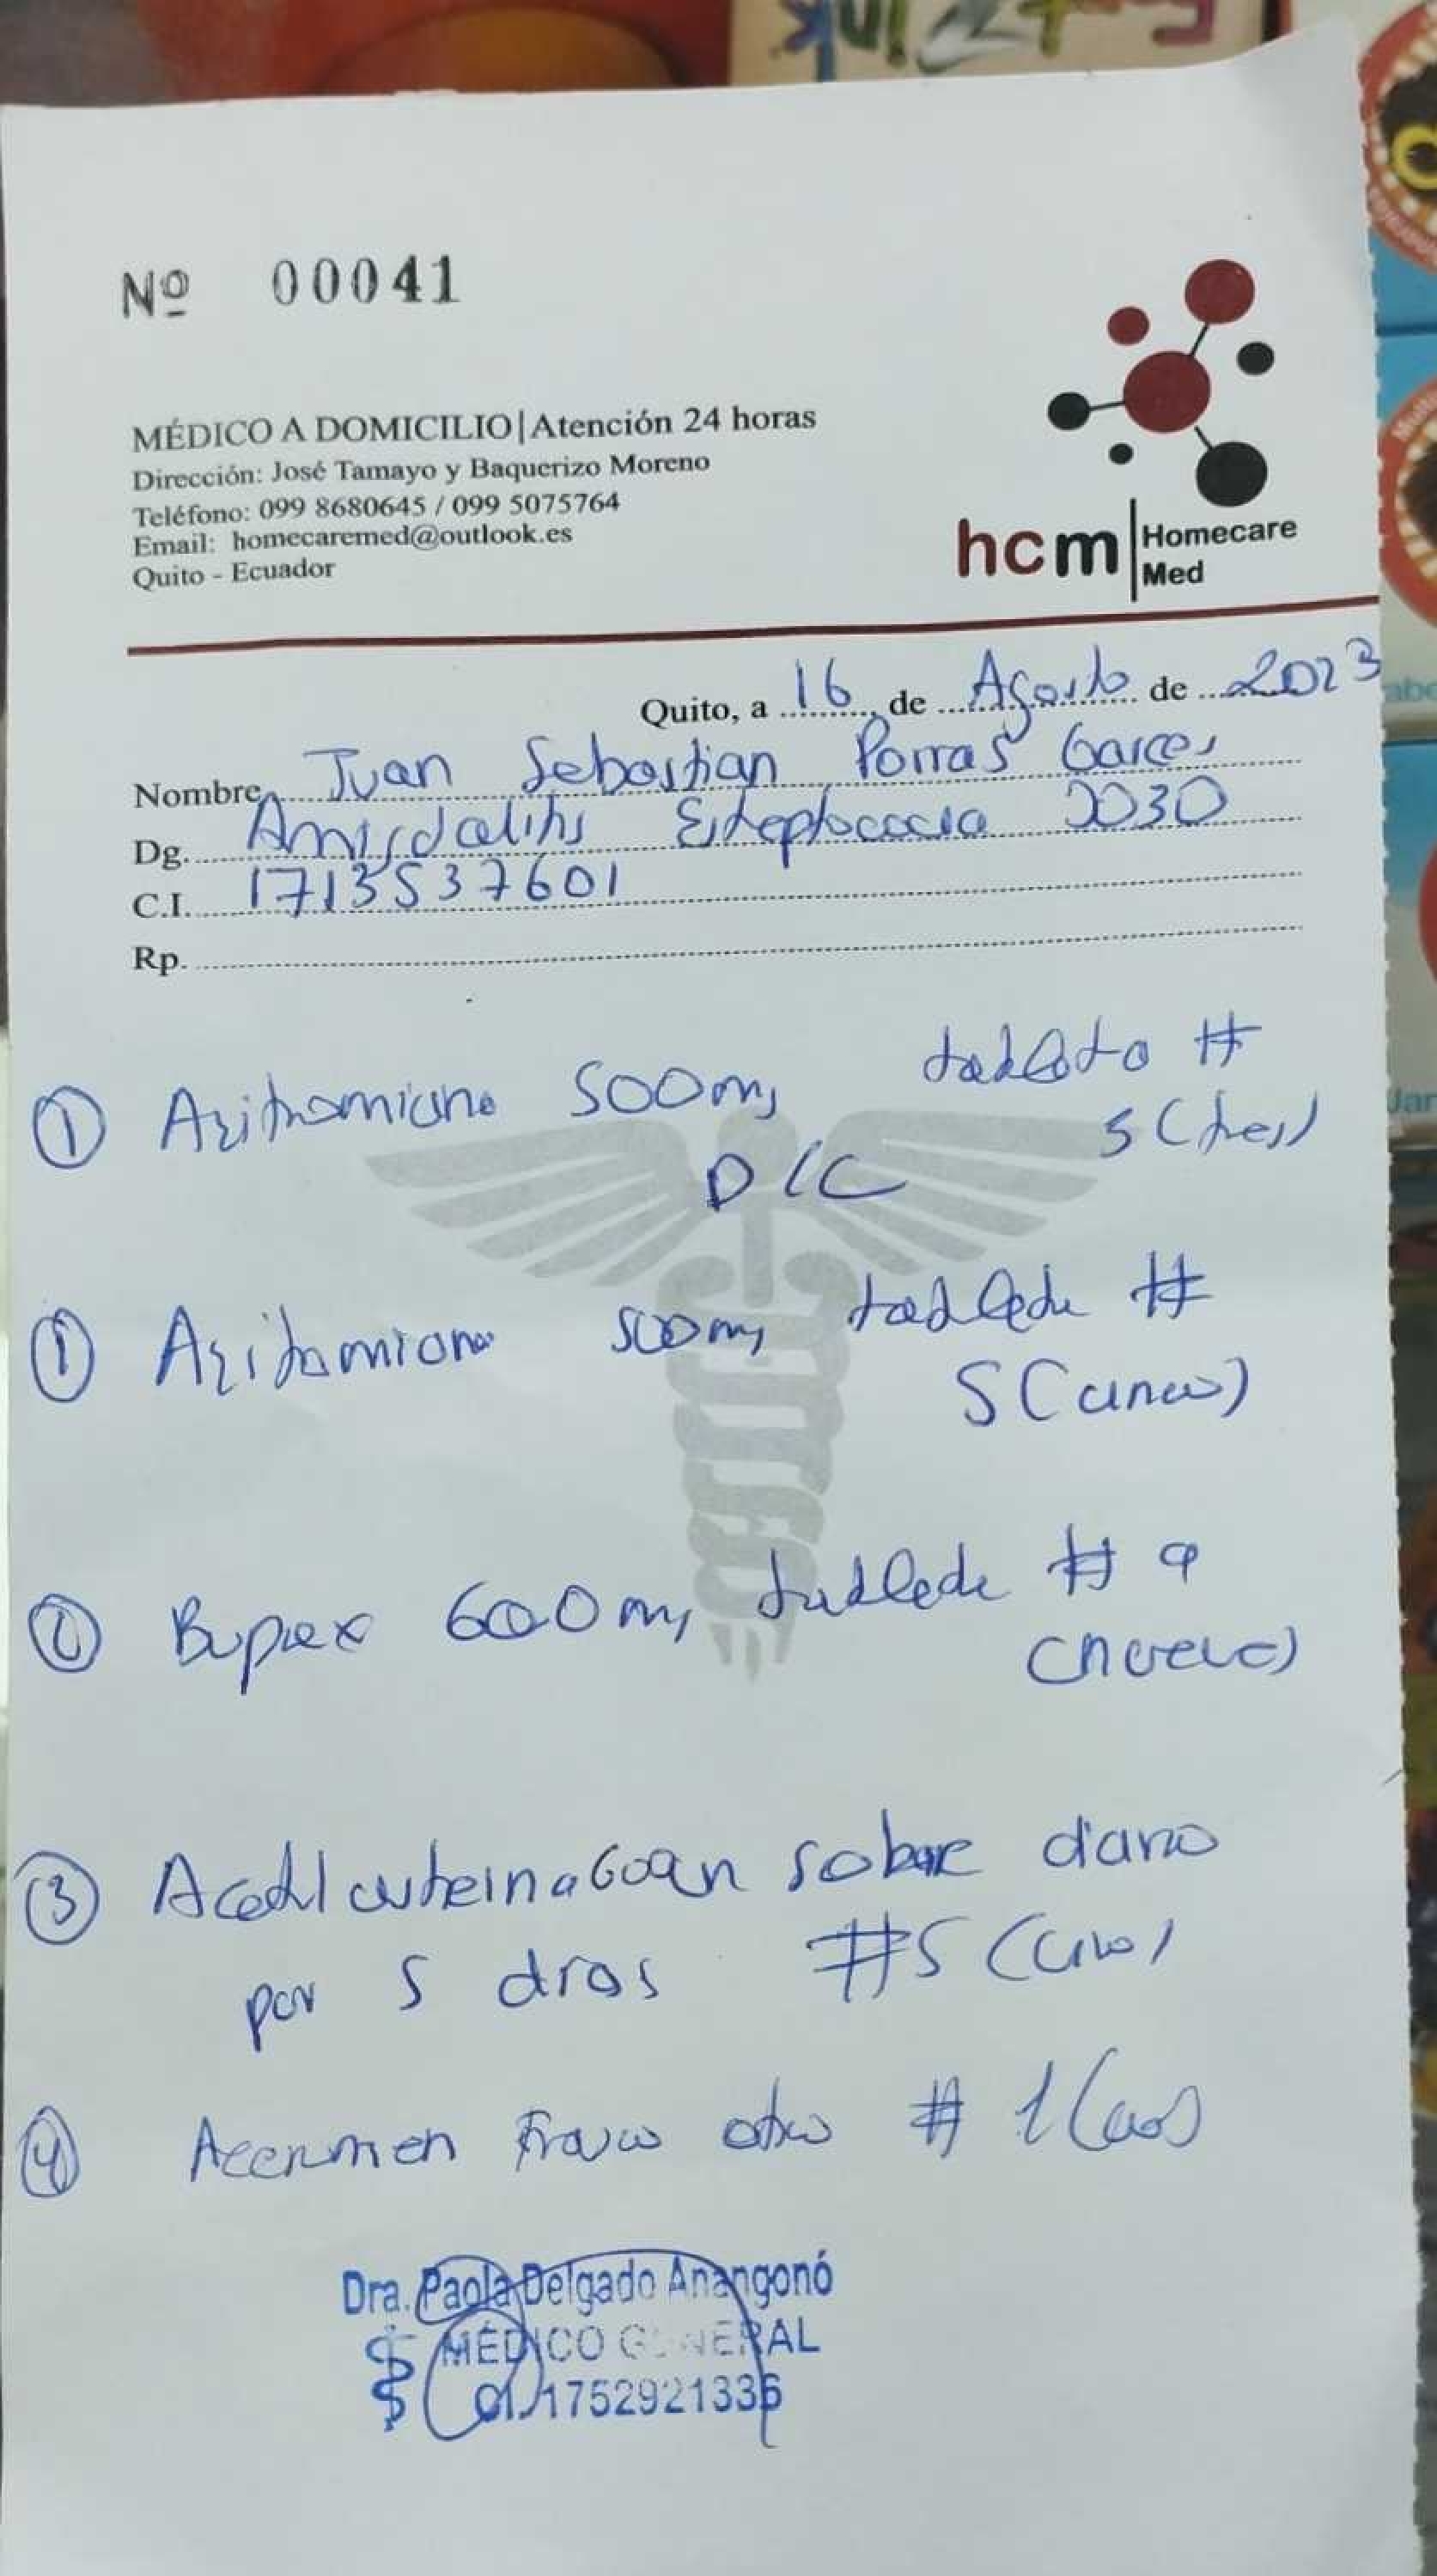 Nº 00041
MÉDICO A DOMICILIO|Atención 24 horas
Dirección: José Tamayo y Baquerizo Moreno
Teléfono: 099 8680645 / 099 5075764
Email: homecaremed@outlook.es
Quito - Ecuador
hcm Homecare
Med
Quito, a 16 de Agosto de 2023
Nombre Juan Sebastian Porras Garces
Dg. Amigdalitis Estreptococia J030
C.I. 1713537601
Rp.
① Azitromicina 500mg tableta #
5 (tres)
D/C
① Azitromicina 500mg tableta #
5 (cinco)
② Buprex 600mg tableta # 9
(nueve)
③ Acetilcisteina 600mg sobre diario
por 5 dias #5 (cinco)
④ frasco # 1 (uno)
Dra. Paola Delgado Anangonó
MÉDICO GENERAL
CI. 1752921336